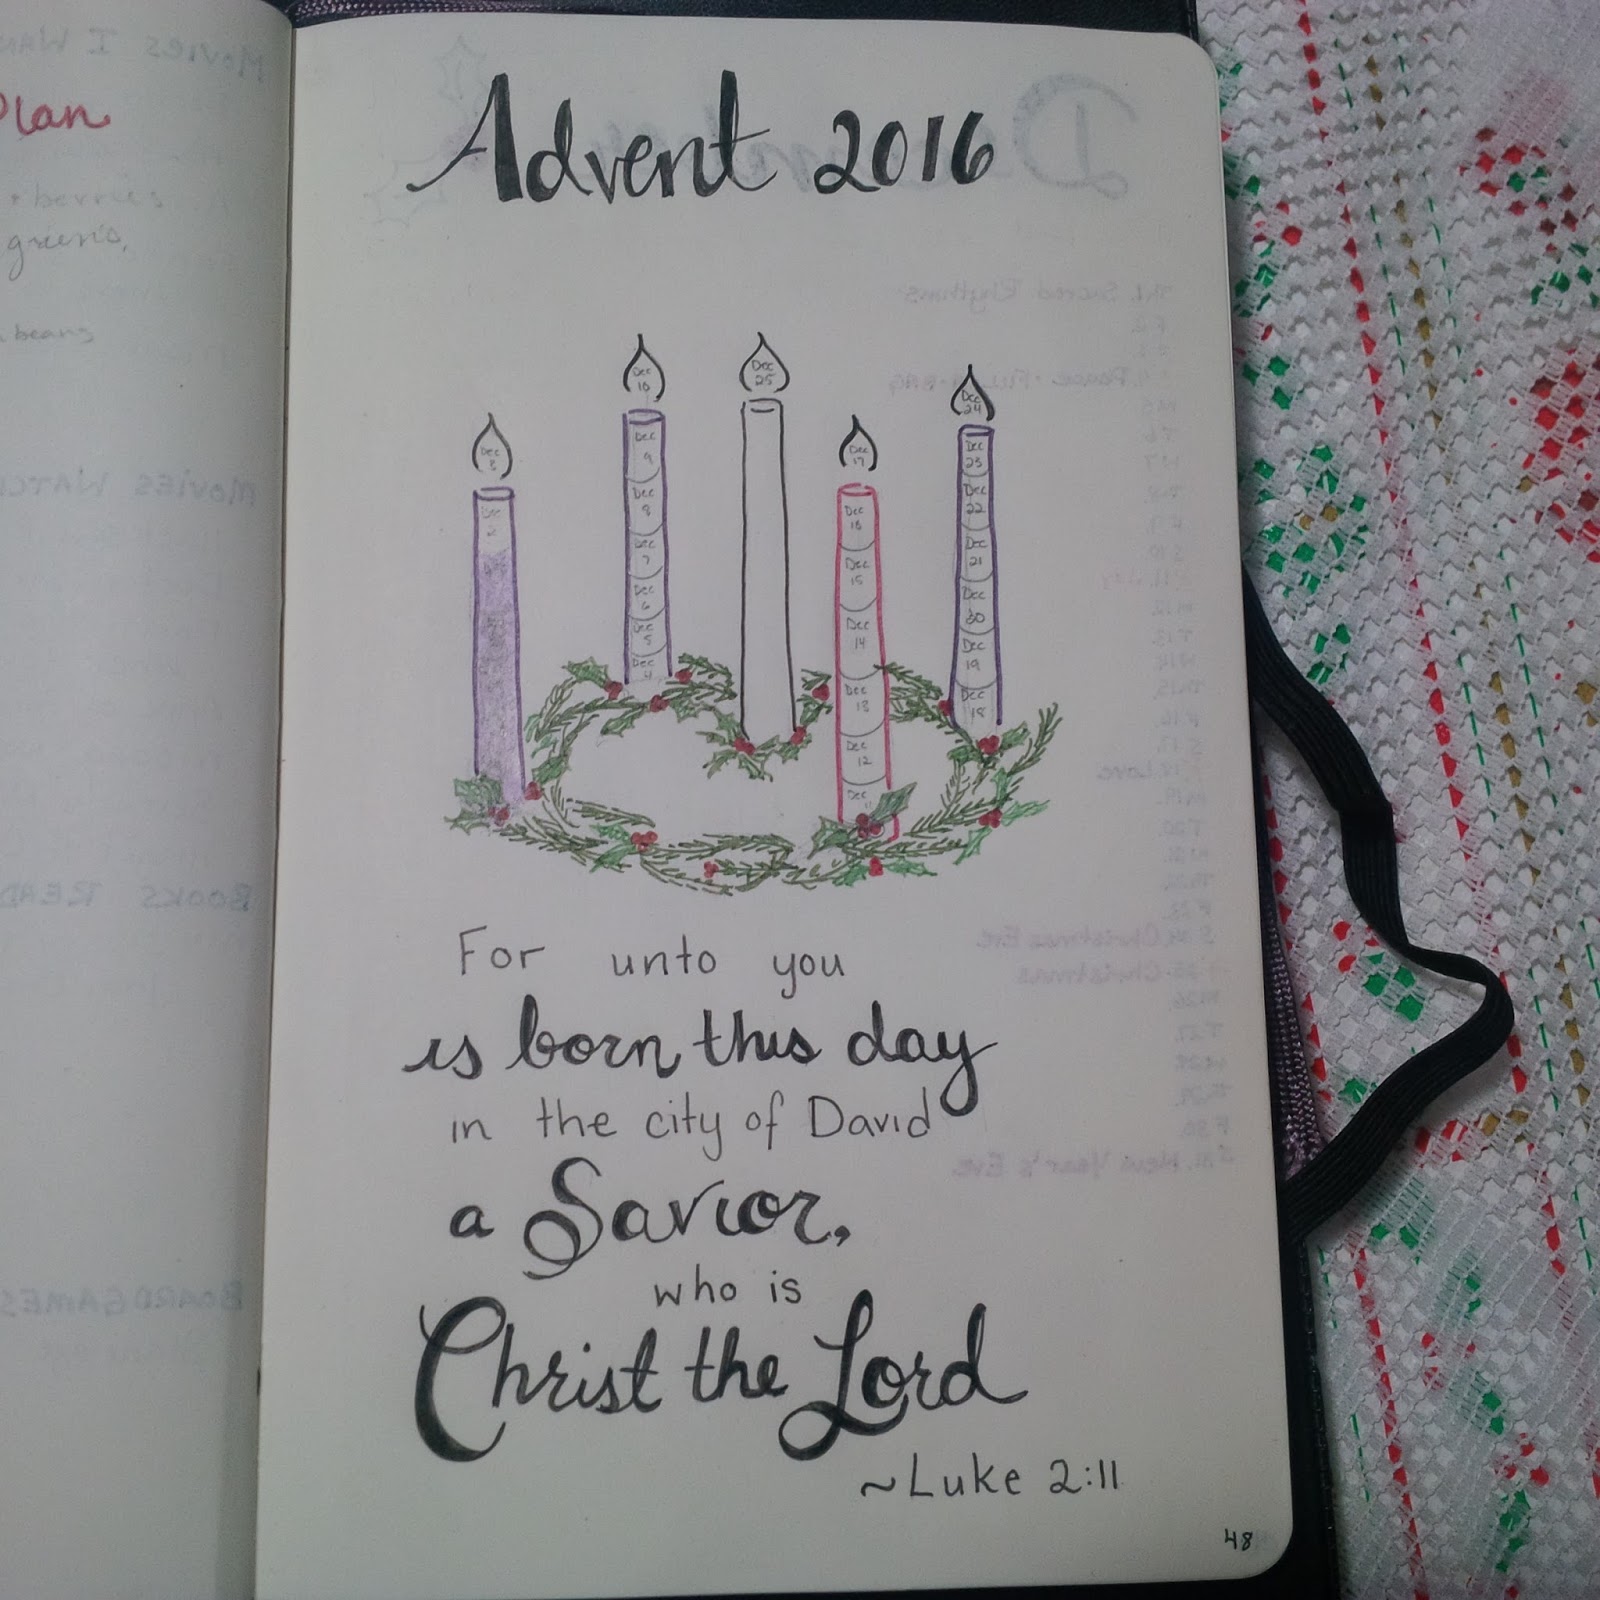 Plan
+ berries
greens,
beans
Advent 2016
Dec 3
Dec 2
Dec 10
Dec 9
Dec 8
Dec 7
Dec 6
Dec 5
Dec 4
Dec 25
Dec 17
Dec 16
Dec 15
Dec 14
Dec 13
Dec 12
Dec 11
Dec 24
Dec 23
Dec 22
Dec 21
Dec 20
Dec 19
Dec 18
For unto you
is born this day
in the city of David
a Savior,
who is
Christ the Lord
~Luke 2:11
48
MOVIES I WAN
MOVIES WATC
BOOKS READ
BOARDGAMES